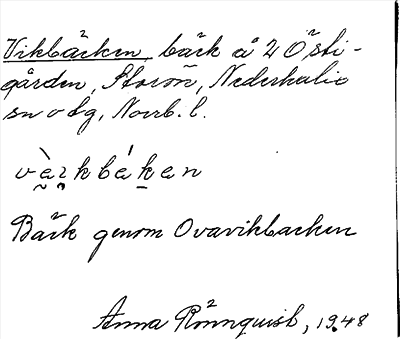 Vikbäcken, bäck å 2 Östi-
gården, Storön, Nederkalix
sn o tg, Norrb. l.
vèkbákan
Bäck genom Ovavikbacken
Anna Rönnquist, 1948